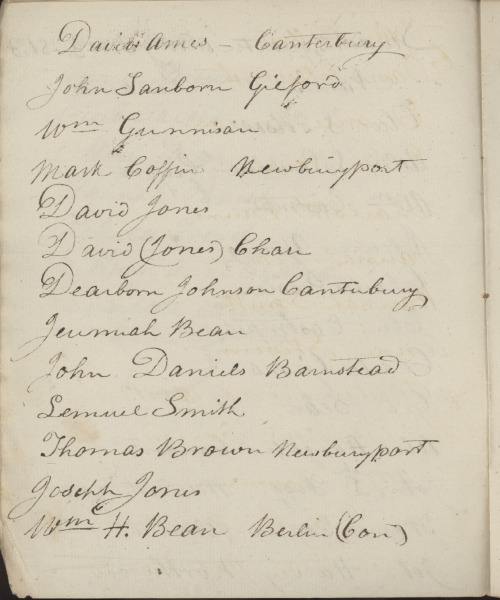 David Ames Canterbury
John Sanborn Gilford
Wm Gunnison
Mark Coffin Newburyport
David Jones
David (Jones) Chan
Dearborn Johnson Canterbury
Jeremiah Bean
John Daniels Barnstead
Lemuel Smith
Thomas Brown Newburyport
Joseph Jones
Wm H. Bean Berlin (Con)